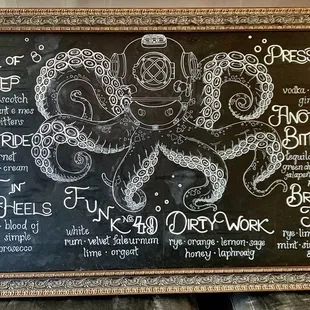 OF
EP
scotch
bitters
RIDE
cream
IN
HEELS
blood of
simple
prosecco
FUNK № 49
white
rum · velvet falernum
lime · orgeat
DIRTY WORK
rye · orange · lemon · sage
honey · laphroaig
PRESS
vodka
gin
ANO
BIT
tequila
green ch
jalape
BR
rye · lim
mint · si